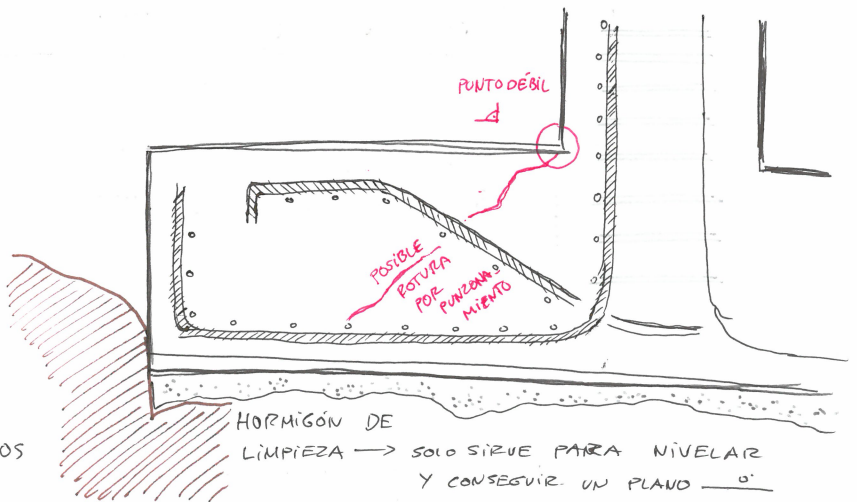 PUNTO DÉBIL
POSIBLE
ROTURA
POR
PUNZONA-
MIENTO
HORMIGÓN DE
LIMPIEZA → SOLO SIRVE PARA NIVELAR
Y CONSEGUIR UN PLANO
OS